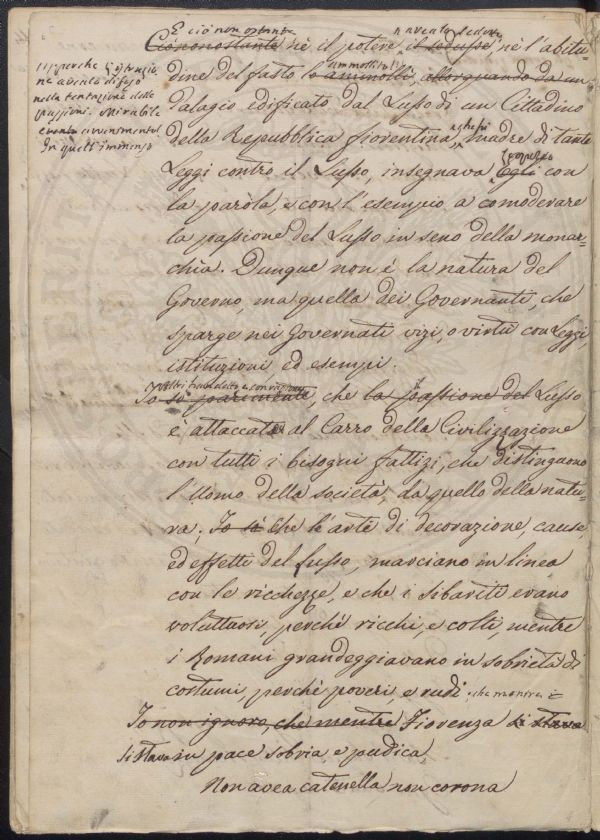 E ciò non ostante n'avea lo sedotto
Ciononostante nè il potere il sedusse, nè l'abitu=
ammollito
dine del fasto lo ammollì, allorquando da un
Palagio edificato dal Lusso di un Cittadino
della Repubblica fiorentina, madre di tante
Leggi contro il Lusso, insegnava Egli con
la parola, e con l'esempio a comoderare
la passione del Lusso in seno della monar=
chia. Dunque non è la natura del
Governo, ma quella dei Governanti, che
sparge nei Governati vizi, o virtù con Leggi,
istituzioni ed esempi.
Io so parimente, che la passione del Lusso
è attaccata al Carro della Civilizzazione
con tutti i bisogni fattizi, che distinguono
l'Uomo della società, da quello della natu=
ra. Io sò che l'arte di decorazione, cause,
ed effetti del Lusso, marciano in linea
con le ricchezze, e che i Sibariti erano
voluttuosi, perchè ricchi, e colti, mentre
i Romani grandeggiavano in sobrietà di
costumi, perchè poveri, e rudi, che mentre
Io non ignoro, che mentre Fiorenza si stava
si stava in pace sobria, e pudica,
Non avea catenella non corona
nella tentazione delle
passioni. Mirabile
evento avvenimento!
In quell'immenso